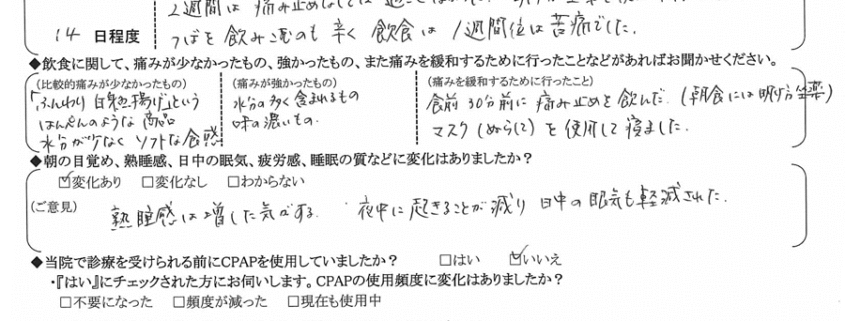 2週間は痛み止めなしでは
14 日程度
つばを飲みこむのも辛く 飲食は 1週間位は苦痛でした.
◆飲食に関して、痛みが少なかったもの、強かったもの、また痛みを緩和するために行ったことなどがあればお聞かせください。
(比較的痛みが少なかったもの)
「ふんわり 自然揚げ」という
はんぺんのような 商品
水分が少なく ソフトな食感
(痛みが強かったもの)
水分の多く含まれるもの
味の濃いもの.
(痛みを緩和するために行ったこと)
食前30分前に痛み止めを飲んだ.(朝食には明け方坐薬)
マスク(ぬらして)を使用して寝ました.
◆朝の目覚め、熟睡感、日中の眠気、疲労感、睡眠の質などに変化はありましたか?
☑変化あり □変化なし □わからない
(ご意見)
熟睡感は増した気がする. 夜中に起きることが減り 日中の眠気も軽減された.
◆当院で診療を受けられる前にCPAPを使用していましたか? □はい ☑いいえ
・『はい』にチェックされた方にお伺いします。CPAPの使用頻度に変化はありましたか?
□不要になった □頻度が減った □現在も使用中